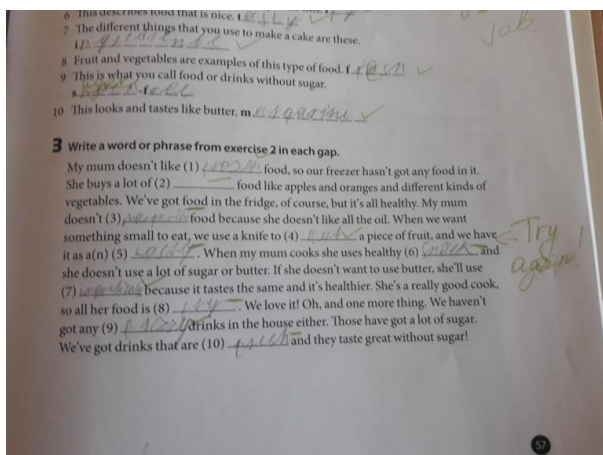 6 This describes food that is nice. t
job.
7 The different things that you use to make a cake are these.
i
8 Fruit and vegetables are examples of this type of food. fresh
9 This is what you call food or drinks without sugar.
s -free
10 This looks and tastes like butter. m
3 Write a word or phrase from exercise 2 in each gap.
My mum doesn't like (1) food, so our freezer hasn't got any food in it.
She buys a lot of (2) food like apples and oranges and different kinds of
vegetables. We've got food in the fridge, of course, but it's all healthy. My mum
doesn't (3) food because she doesn't like all the oil. When we want
something small to eat, we use a knife to (4) a piece of fruit, and we have Try
it as a(n) (5) . When my mum cooks she uses healthy (6) snack and again!
she doesn't use a lot of sugar or butter. If she doesn't want to use butter, she'll use
(7) because it tastes the same and it's healthier. She's a really good cook,
so all her food is (8) . We love it! Oh, and one more thing. We haven't
got any (9) drinks in the house either. Those have got a lot of sugar.
We've got drinks that are (10) fresh and they taste great without sugar!
57